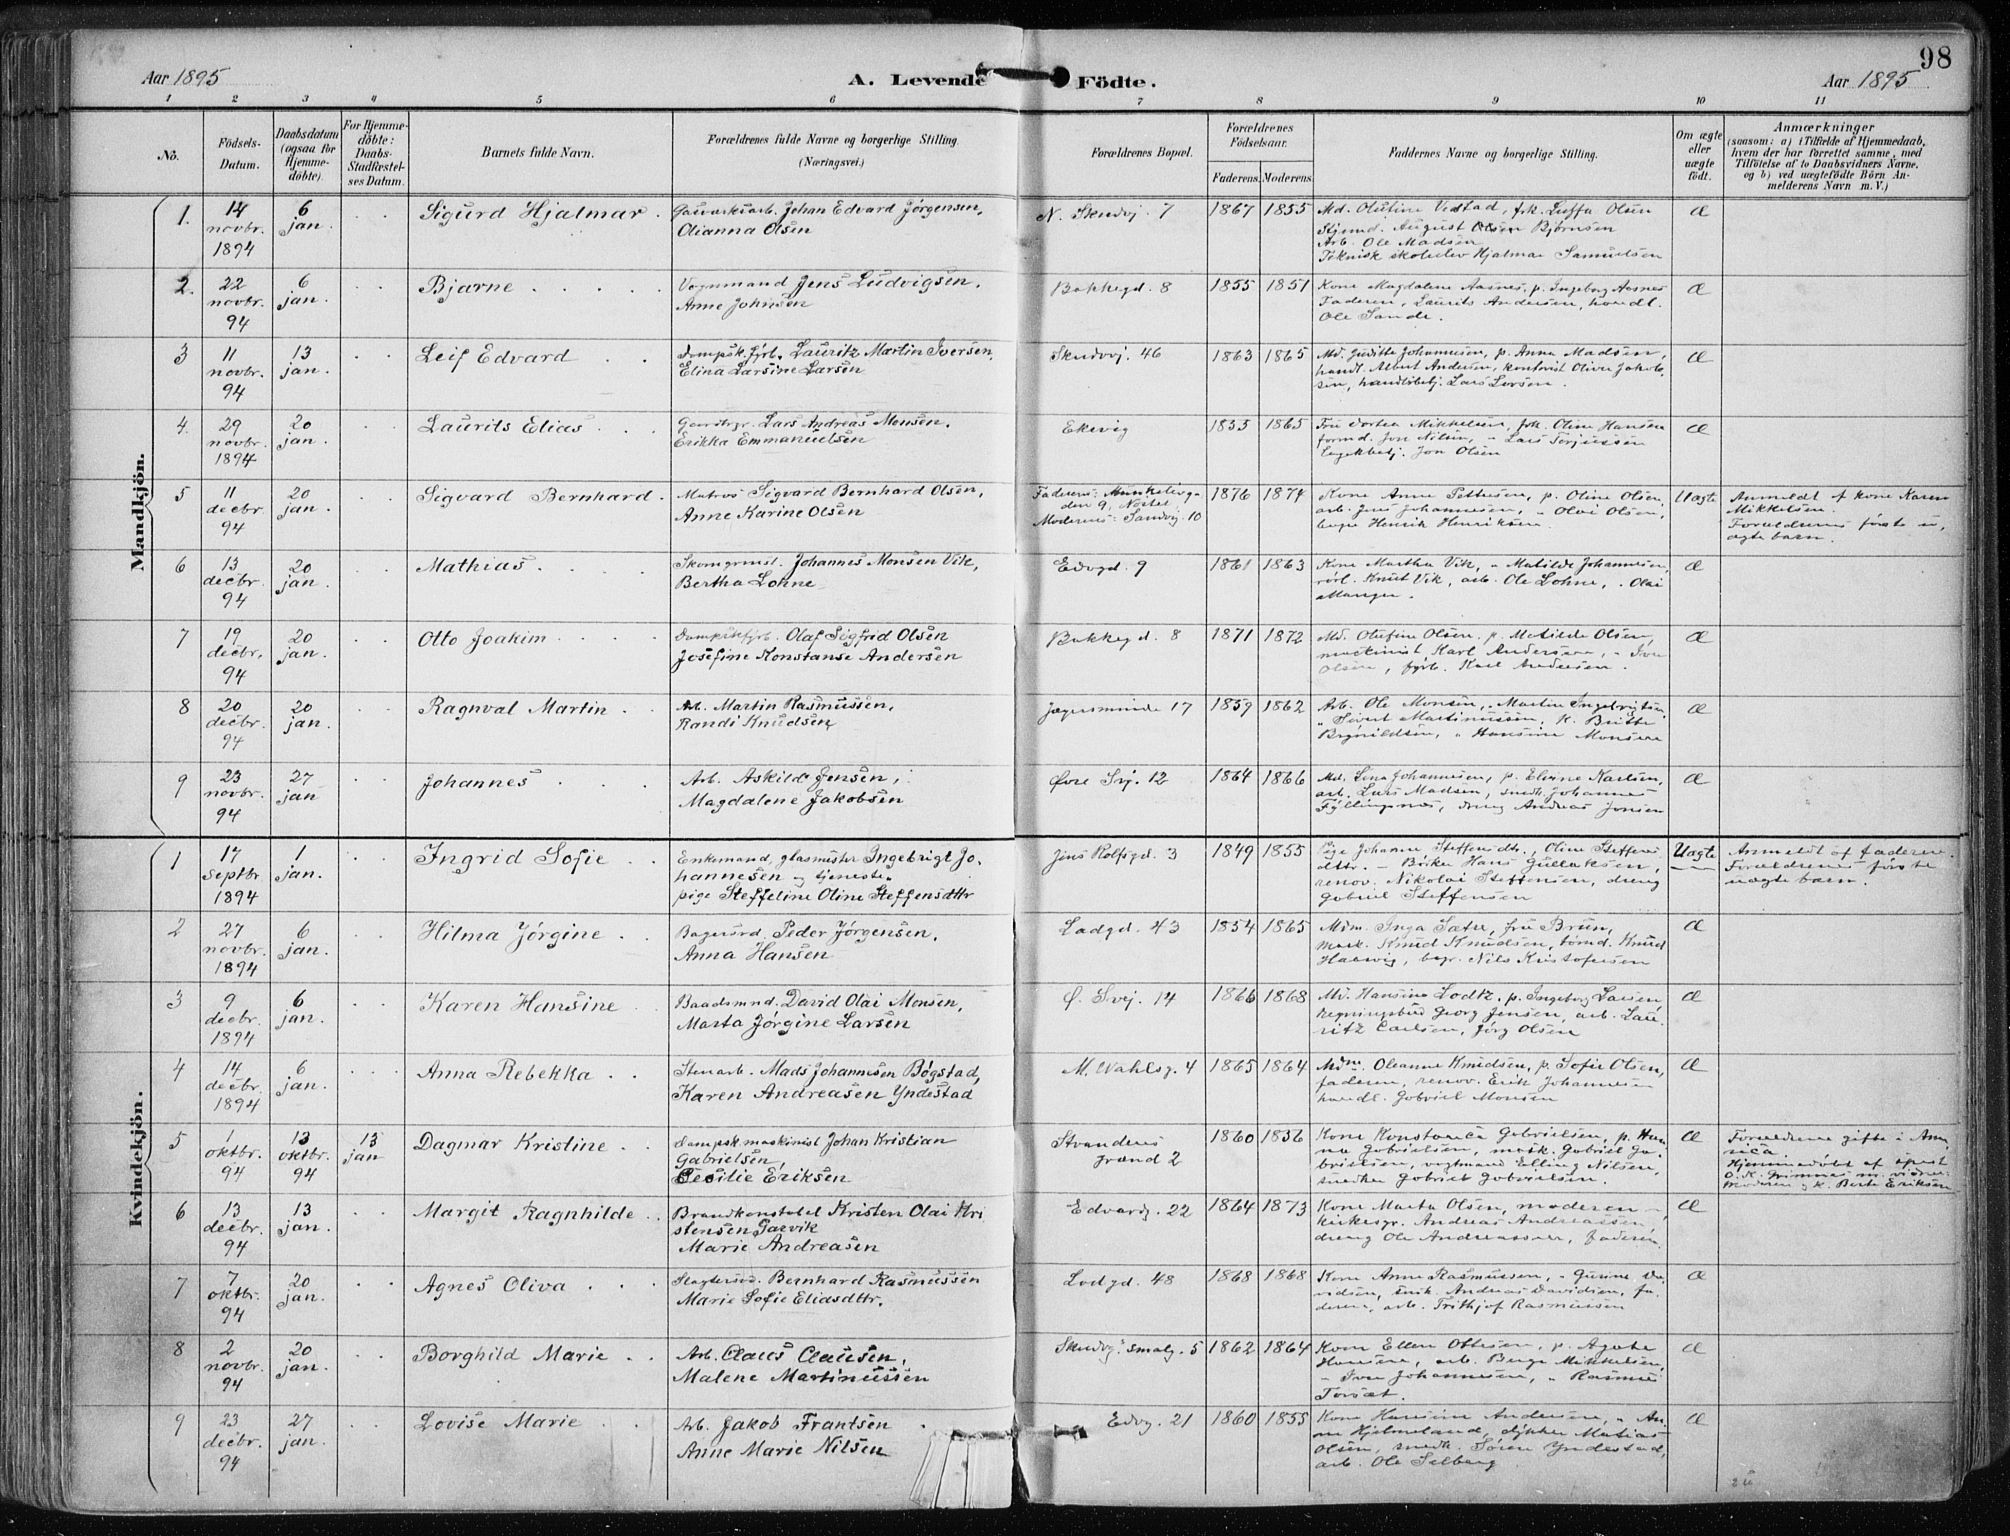 98
Aar 1895
A. Levende Födte.
Aar 1895
1 2 3 4 5 6 7 8 9 10 11
No.
Födsels-Datum.
Daabsdatum (ogsaa for Hjemme-döbte).
For Hjemme-döbte: Daabs-Stadfæstel-ses Datum.
Barnets fulde Navn.
Forældrenes fulde Navne og borgerlige Stilling (Næringsvei.)
Forældrenes Bopæl.
Forældrenes Födselsaar.
Faderens. Moderens.
Faddernes Navne og borgerlige Stilling.
Om ægte eller uægte födt.
Anmærkninger
(saasom: a) i Tilfælde af Hjemmedaab,
hvem der har forrettet samme, med
Tilföielse af to Daabsvidners Navne,
og b) ved uægtefödte Börn An-
melderens Navn m. V.)
Mandkjön.
1. 14 novbr. 1894 6 jan. Sigurd Hjalmar. Gasværksarb. Johan Edvard Jørgensen,
Olianna Olsen
N. Skudvj. 7 1867 1855 Md. Olutine Vedstad, frk. Luffa Olsen
Stjmd. August Olsen Bjørnsen
Arb. Ole Madsen
Teknisk skoleelev Hjalmar Samuelsen
Æ
2. 22 novbr. 94 6 jan. Bjarne Vognmand Jens Ludvigsen,
Anne Johnsen
Bakkegd. 8 1855 1851 Kone Magdalene Aasnes, p. Ingeborg Aasnes
Faderen, Laurits Andersen, handl.
Ole Sande.
Æ
3 11 novbr. 94 13 jan. Leif Edvard Dampsk.fyrb. Lauritz Martin Iversen,
Elina Larsine Larsen
Skudvj. 46 1863 1865 Md. Juditte Johannesen, p. Anna Madsen,
handl. Albert Andersen, kontorist Oliver Jakob-
sen, handlsbetj. Lars Larsen.
Æ
4. 29 novbr. 1894 20 jan. Laurits Elias Lars Andreas Monsen,
Erikka Emmanuelsen
Ekevig 1833 1865 Fru Dortea Mikkelsen, frk. Oline Hansen
formd. Jon Nilsen, " Lars Terjussen
Jon Olsen
Æ
5 11 decbr. 94 20 jan. Sigvard Bernhard. Matros Sigvard Bernhard Olsen,
Anne Karine Olsen
Faderens: Munkelivg-
den 9, Nøstet
Moderens: Sandvig. 10
1876 1874 Kone Anne Pettersen, p. Oline Olsen,
arb. Jens Johannesen, " Olai Olsen,
Henrik Henriksen.
Uægte Anmeldt af kone Karen
Mikkelsen.
Forældrenes første u-
ægte barn.
6 13 decbr. 94 20 jan. Mathias. Skomgrmst. Johannes Monsen Vik,
Bertha Lohne
Edvgd. 9 1861 1863 Kone Martha Vik, " Matilde Johannesen,
rørl. Knut Vik, arb. Ole Lohne, " Olai
Manger.
Æ
7 19 decbr. 94 20 jan. Otto Joakim Dampskfyrb. Olaf Sigfrid Olsen
Josefine Konstanse Andersen
Bakkegd. 8 1871 1872 Md. Olufine Olsen, p. Matilde Olsen,
maskinist Karl Andersen, " Iver
Olsen, fyrb. Karl Andersen.
Æ
8 20 decbr. 94 20 jan. Ragnval Martin Arb. Martin Rasmussen,
Randi Knudsen,
Jægersminde 17 1859 1862 Arb. Ole Monsen, " Martin Ingebrigtsen
" Sivert Martinussen, k. Britte
Brynildsen, " Hansine Monsen
Æ
9 23 novbr. 94 27 jan Johannes Arb. Askild Jensen,
Magdalene Jakobsen
Øvre Svj. 12 1864 1866 Md. Lina Johannesen, p. Elvine Karlsen,
arb. Lars Madsen, snedk. Johannes
Fyllingsnes, dreng Andreas Jonsen
Æ
Kvindekjön.
1 17 septbr 1894 1 jan. Ingrid Sofie Enkemand, glasmester Ingebrigt Jo-
hannesen og tjeneste-
pige Steffeline Oline Steffensdttr
Jens Rolfsgd. 3 1849 1855 Pige Johanne Steffensdtr., Oline Steffens
dttr. - Bøkker Hans Gullaksen,
renov. Nikolai Steffensen, dreng
Gabriel Steffensen
Uægte Anmeldt af faderen.
Forældrenes første
uægte barn.
2 27 novbr. 1894 6 jan. Hilma Jørgine Bagersvd. Peder Jørgensen,
Anna Hansen
Ladgd. 43 1854 1865 Mdm. Inga Sætre, fru Brun,
mask. Knud Knudsen, tømd. Knud
Haavig, bagr. Nils Kristofersen
Æ
3 9 decbr. 1894 6 jan. Karen Hansine Baadsmnd. David Olai Monsen,
Marta Jørgine Larsen
Ø. Svej. 14 1866 1868 Md. Hansine Lodtz, p. Ingeborg Larsen
regningsbud Georg Jensen, arb. Lau-
ritz Carlsen, Jørg Olsen
Æ
4 14 decbr. 1894 6 jan. Anna Rebekka Stenarb. Mads Johannesen Bøgstad,
Karen Andreasen Yndestad
M. Wahlsg. 4 1865 1864 Mdm. Oleanne Knudsen, p. Sofie Olsen,
faderen, renov. Erik Johannesen
handl. Gabriel Monsen
Æ
5 1 oktbr. 94 13 oktbr. 94 13 jan Dagmar Kristine Dampsk.maskinist Johan Kristian
Gabrielsen,
Cecilie Eriksen
Strandens
grænd 2
1860 1856 Kone Konstance Gabrielsen, p. Han-
na Gabrielsen, mask. Gabriel Ga-
brielsen, vægtmand Elling Nilsen,
snedker Gabriel Gabrielsen.
Æ Forældrene gifte i Ame-
rica.
Hjemmedøbt af
O.K. Grimnes m. vidner
Moderen og K. Berte Eriksen
6 13 decbr. 94 13 jan. Margit Ragnhilde Brandkonstabel Kristen Olai Kri
stensen Garvik
Marie Andreasen
Edvardg. 22 1864 1873 Kone Marta Olsen, moderen -
kirkesgr. Andreas Andreassen,
dreng Ole Andreassen, faderen.
Æ
7 7 oktbr. 94 20 jan. Agnes Oliva Slagtersvd. Bernhard Rasmussen
Marie Sofie Eliasdttr.
Ladgd. 48 1868 1868 Kone Anne Rasmussen, " Gurine Da-
vidsen, Erik Andreas Davidsen, fa-
deren, arb. Trithjof Rasmussen
Æ
8 2 novbr. 94 20 jan. Borghild Marie Arb. Claus Clausen,
Malene Martinussen
Skudvg.smalg. 5 1862 1864 Kone Ellen Ottesen, p. Agate
Hansen, arb. Berge Mikkelsen,
" Iver Johannesen, " Rasmus
Torsæt.
Æ
9 23 decbr. 94 27 jan. Lovise Marie Arb. Jakob Frantsen
Anne Marie Nilsen
Edvg. 21 1860 1855 Kone Hansine Andersen, " An-
na Hjelmeland, dykker Matias
Olsen, snedk. Søren Yndestad,
arb. Ole Selberg
Æ